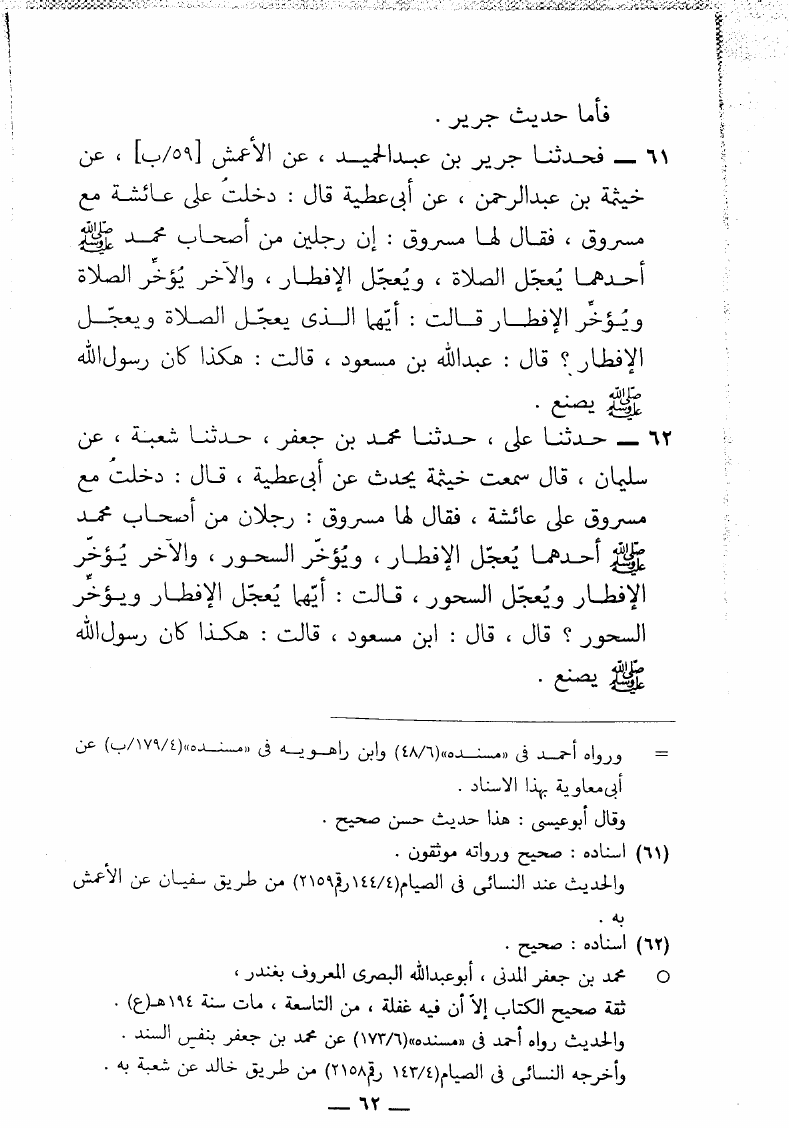 فأما حديث جرير .
٦١ ــ فحدثنا جرير بن عبدالحميد ، عن الأعمش [٥٩/ب] ، عن
خيثمة بن عبدالرحمن ، عن أبى عطية قال : دخلتُ على عائشة مع
مسروق ، فقال لها مسروق : إن رجلين من أصحاب محمد ﷺ
أحدهما يُعجّل الصلاة ، ويُعجّل الإفطار ، والآخر يُؤخّر الصلاة
ويُؤخّر الإفطار قالت : أيّهما الذى يعجّل الصلاة ويعجّل
الإفطار ؟ قال : عبدالله بن مسعود ، قالت : هكذا كان رسول الله
ﷺ يصنع .
٦٢ ــ حدثنا على ، حدثنا محمد بن جعفر ، حدثنا شعبة ، عن
سليمان ، قال سمعت خيثمة يحدث عن أبى عطية ، قال : دخلتُ مع
مسروق على عائشة ، فقال لها مسروق : رجلان من أصحاب محمد
ﷺ أحدهما يُعجّل الإفطار ، ويُؤخّر السحور ، والآخر يُؤخّر
الإفطار ويُعجّل السحور ، قالت : أيّهما يُعجّل الإفطار ويؤخّر
السحور ؟ قال ، قال : ابن مسعود ، قالت : هكذا كان رسول الله
ﷺ يصنع .
= ورواه أحمد فى «مسنده»(٤٨/٦) وابن راهويه فى «مسنده»(١٧٩/٤/ب) عن
أبى معاوية بهذا الاسناد .
وقال أبوعيسى : هذا حديث حسن صحيح .
(٦١) اسناده : صحيح ورواته موثقون .
والحديث عند النسائى فى الصيام(١٤٤/٤رقم٢١٥٩) من طريق سفيان عن الأعمش
به .
(٦٢) اسناده : صحيح .
○ محمد بن جعفر المدنى ، أبوعبدالله البصرى المعروف بغندر ،
ثقة صحيح الكتاب إلاّ أن فيه غفلة ، من التاسعة ، مات سنة ١٩٤هـ(ع) .
والحديث رواه أحمد فى «مسنده»(١٧٣/٦) عن محمد بن جعفر بنفس السند .
وأخرجه النسائى فى الصيام(١٤٣/٤ رقم٢١٥٨) من طريق خالد عن شعبة به .
ــ ٦٢ ــ